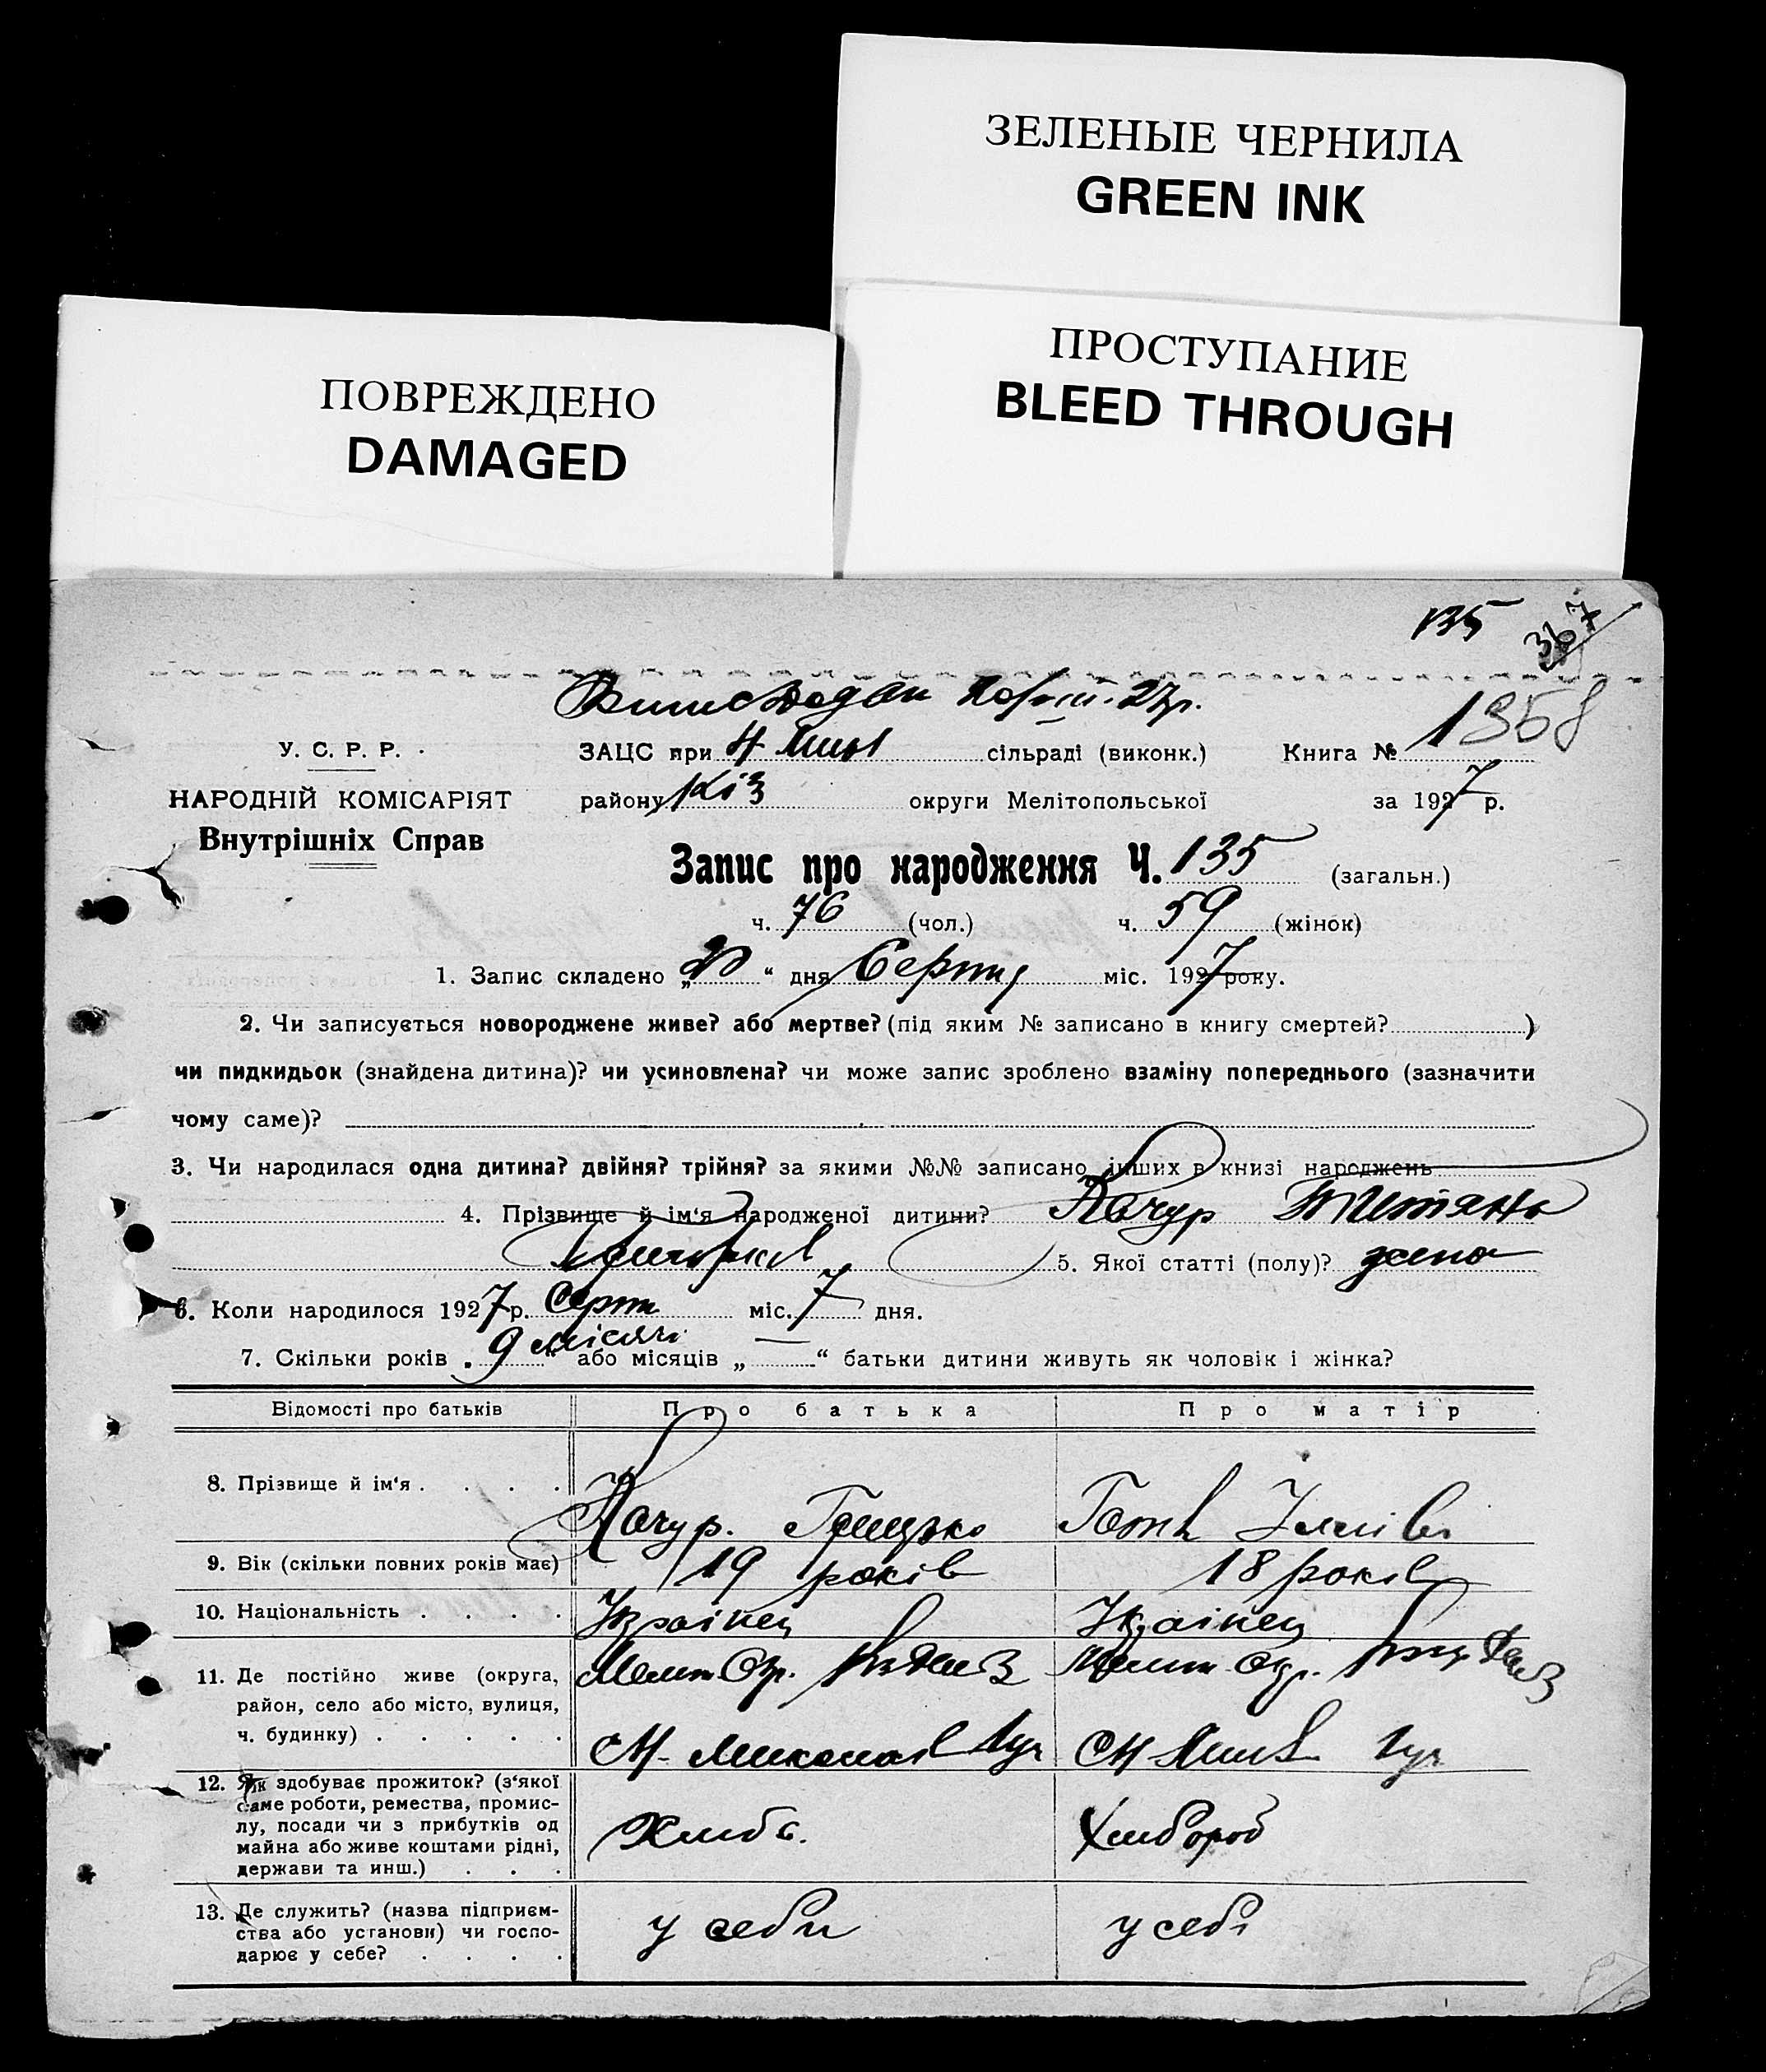 ЗЕЛЕНЫЕ ЧЕРНИЛА
GREEN INK
ПРОСТУПАНИЕ
BLEED THROUGH
ПОВРЕЖДЕНО
DAMAGED
135
367
1358
У. С. Р. Р.
ЗАЦС при сільраді (виконк.) Книга №
НАРОДНІЙ КОМІСАРІЯТ
району Кіз округи Мелітопольської за 1927 р.
Внутрішніх Справ
Запис про народження Ч. 135 (загальн.)
ч. 76 (чол.) ч. 59 (жінок)
1. Запис складено „20“ дня Серпня міс. 1927 року.
2. Чи записується новороджене живе? або мертве? (під яким № записано в книгу смертей? )
чи пидкидьок (знайдена дитина)? чи усиновлена? чи може запис зроблено взаміну попереднього (зазначити
чому саме)?
3. Чи народилася одна дитина? двійня? трійня? за якими №№ записано інших в книзі народжень
4. Прізвище й ім‘я народженої дитини? Качур
5. Якої статті (полу)? жено
6. Коли народилося 1927 р. Серпн міс. 7 дня.
7. Скільки років „9 місяч“ або місяців „—“ батьки дитини живуть як чоловік і жінка?
Відомості про батьків Про батька Про матір
8. Прізвище й ім‘я Качур. Грицько
9. Вік (скільки повних років має) 19 років 18 років
10. Національність Українец Українец
11. Де постійно живе (округа,
район, село або місто, вулиця,
ч. будинку)
Мелит Окр.
12. Як здобуває прожиток? (з‘якої
саме роботи, ремества, промис-
лу, посади чи з прибутків од
майна або живе коштами рідні,
держави та инш.)
Хлибо. Хлибороб
13. Де служить? (назва підприєм-
ства або установи) чи госпо-
дарює у себе?
у себи у себі